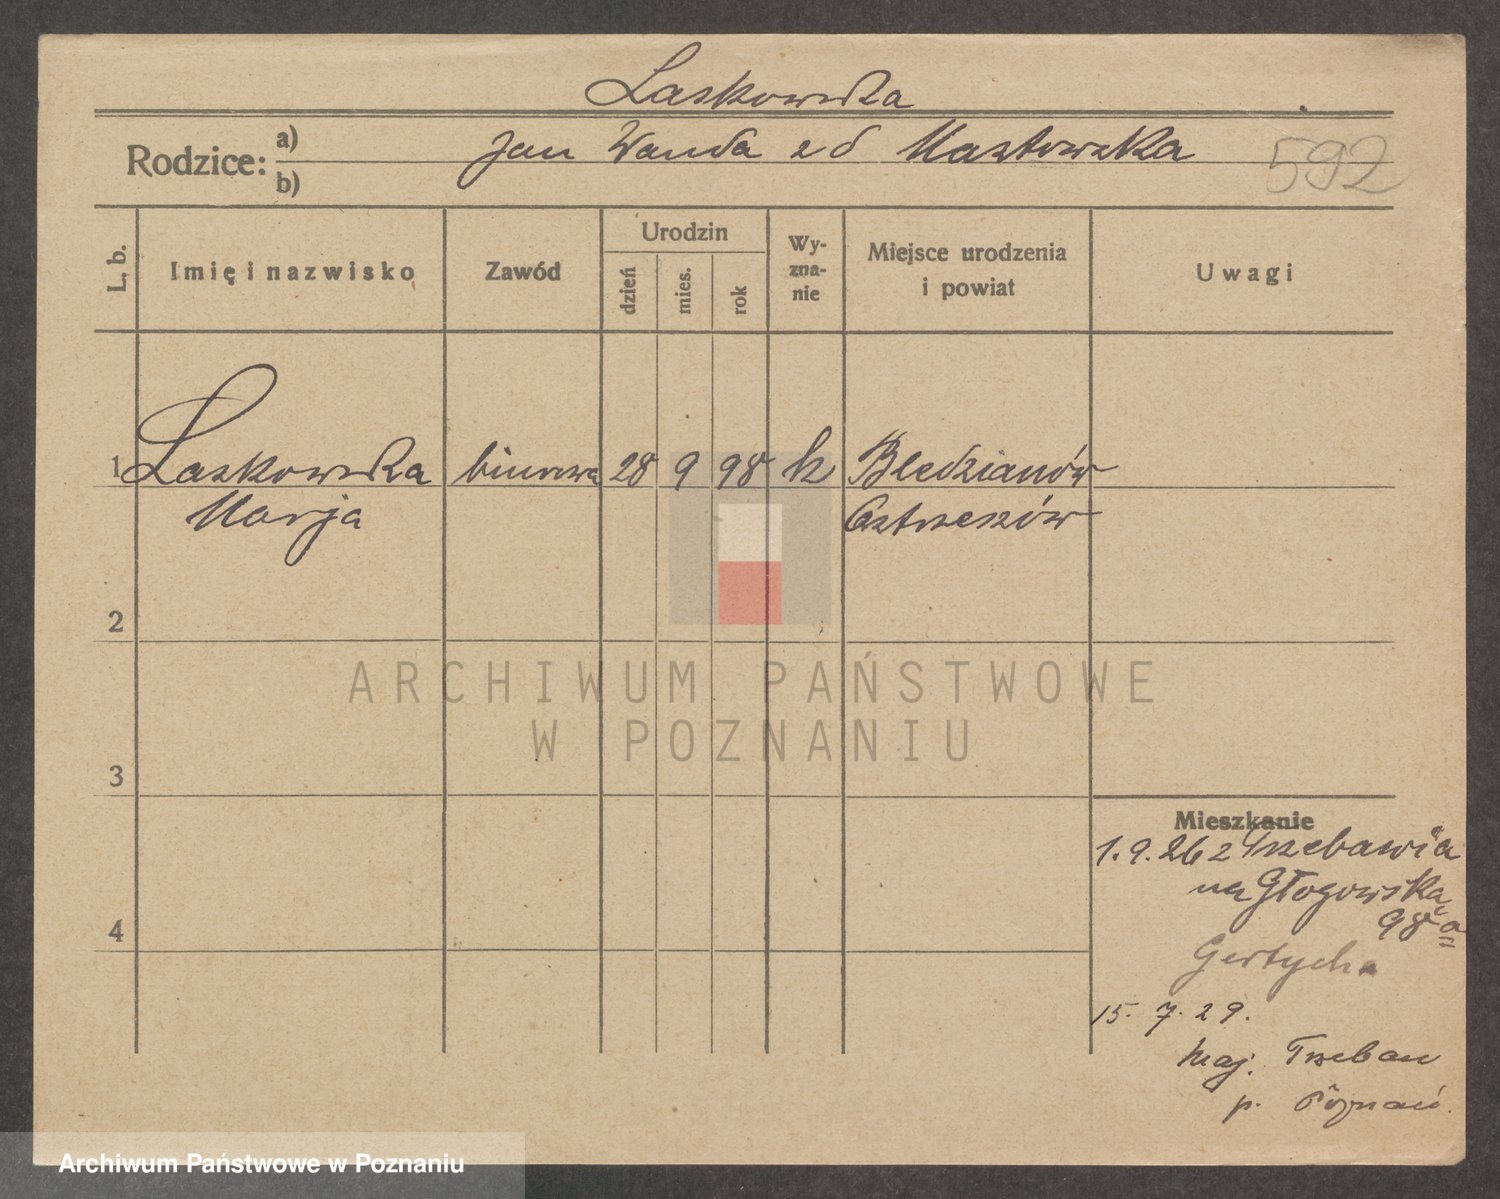 Laskowska
Rodzice: a) b) Jan Wanda z d Masłowska 592
L. b. Imię i nazwisko Zawód Urodzin dzień mies. rok Wyznanie Miejsce urodzenia i powiat Uwagi
1 Laskowska biurowa 28 9 98 k Bledzianów
Marja Ostrzeszów
2
ARCHIWUM PAŃSTWOWE
W POZNANIU
3
Mieszkanie
1.9.26 z Trzebawia
na Głogowska
98 a
Gertych
4
15. 7. 29.
maj. Trzebaw
p. Poznań.
Archiwum Państwowe w Poznaniu